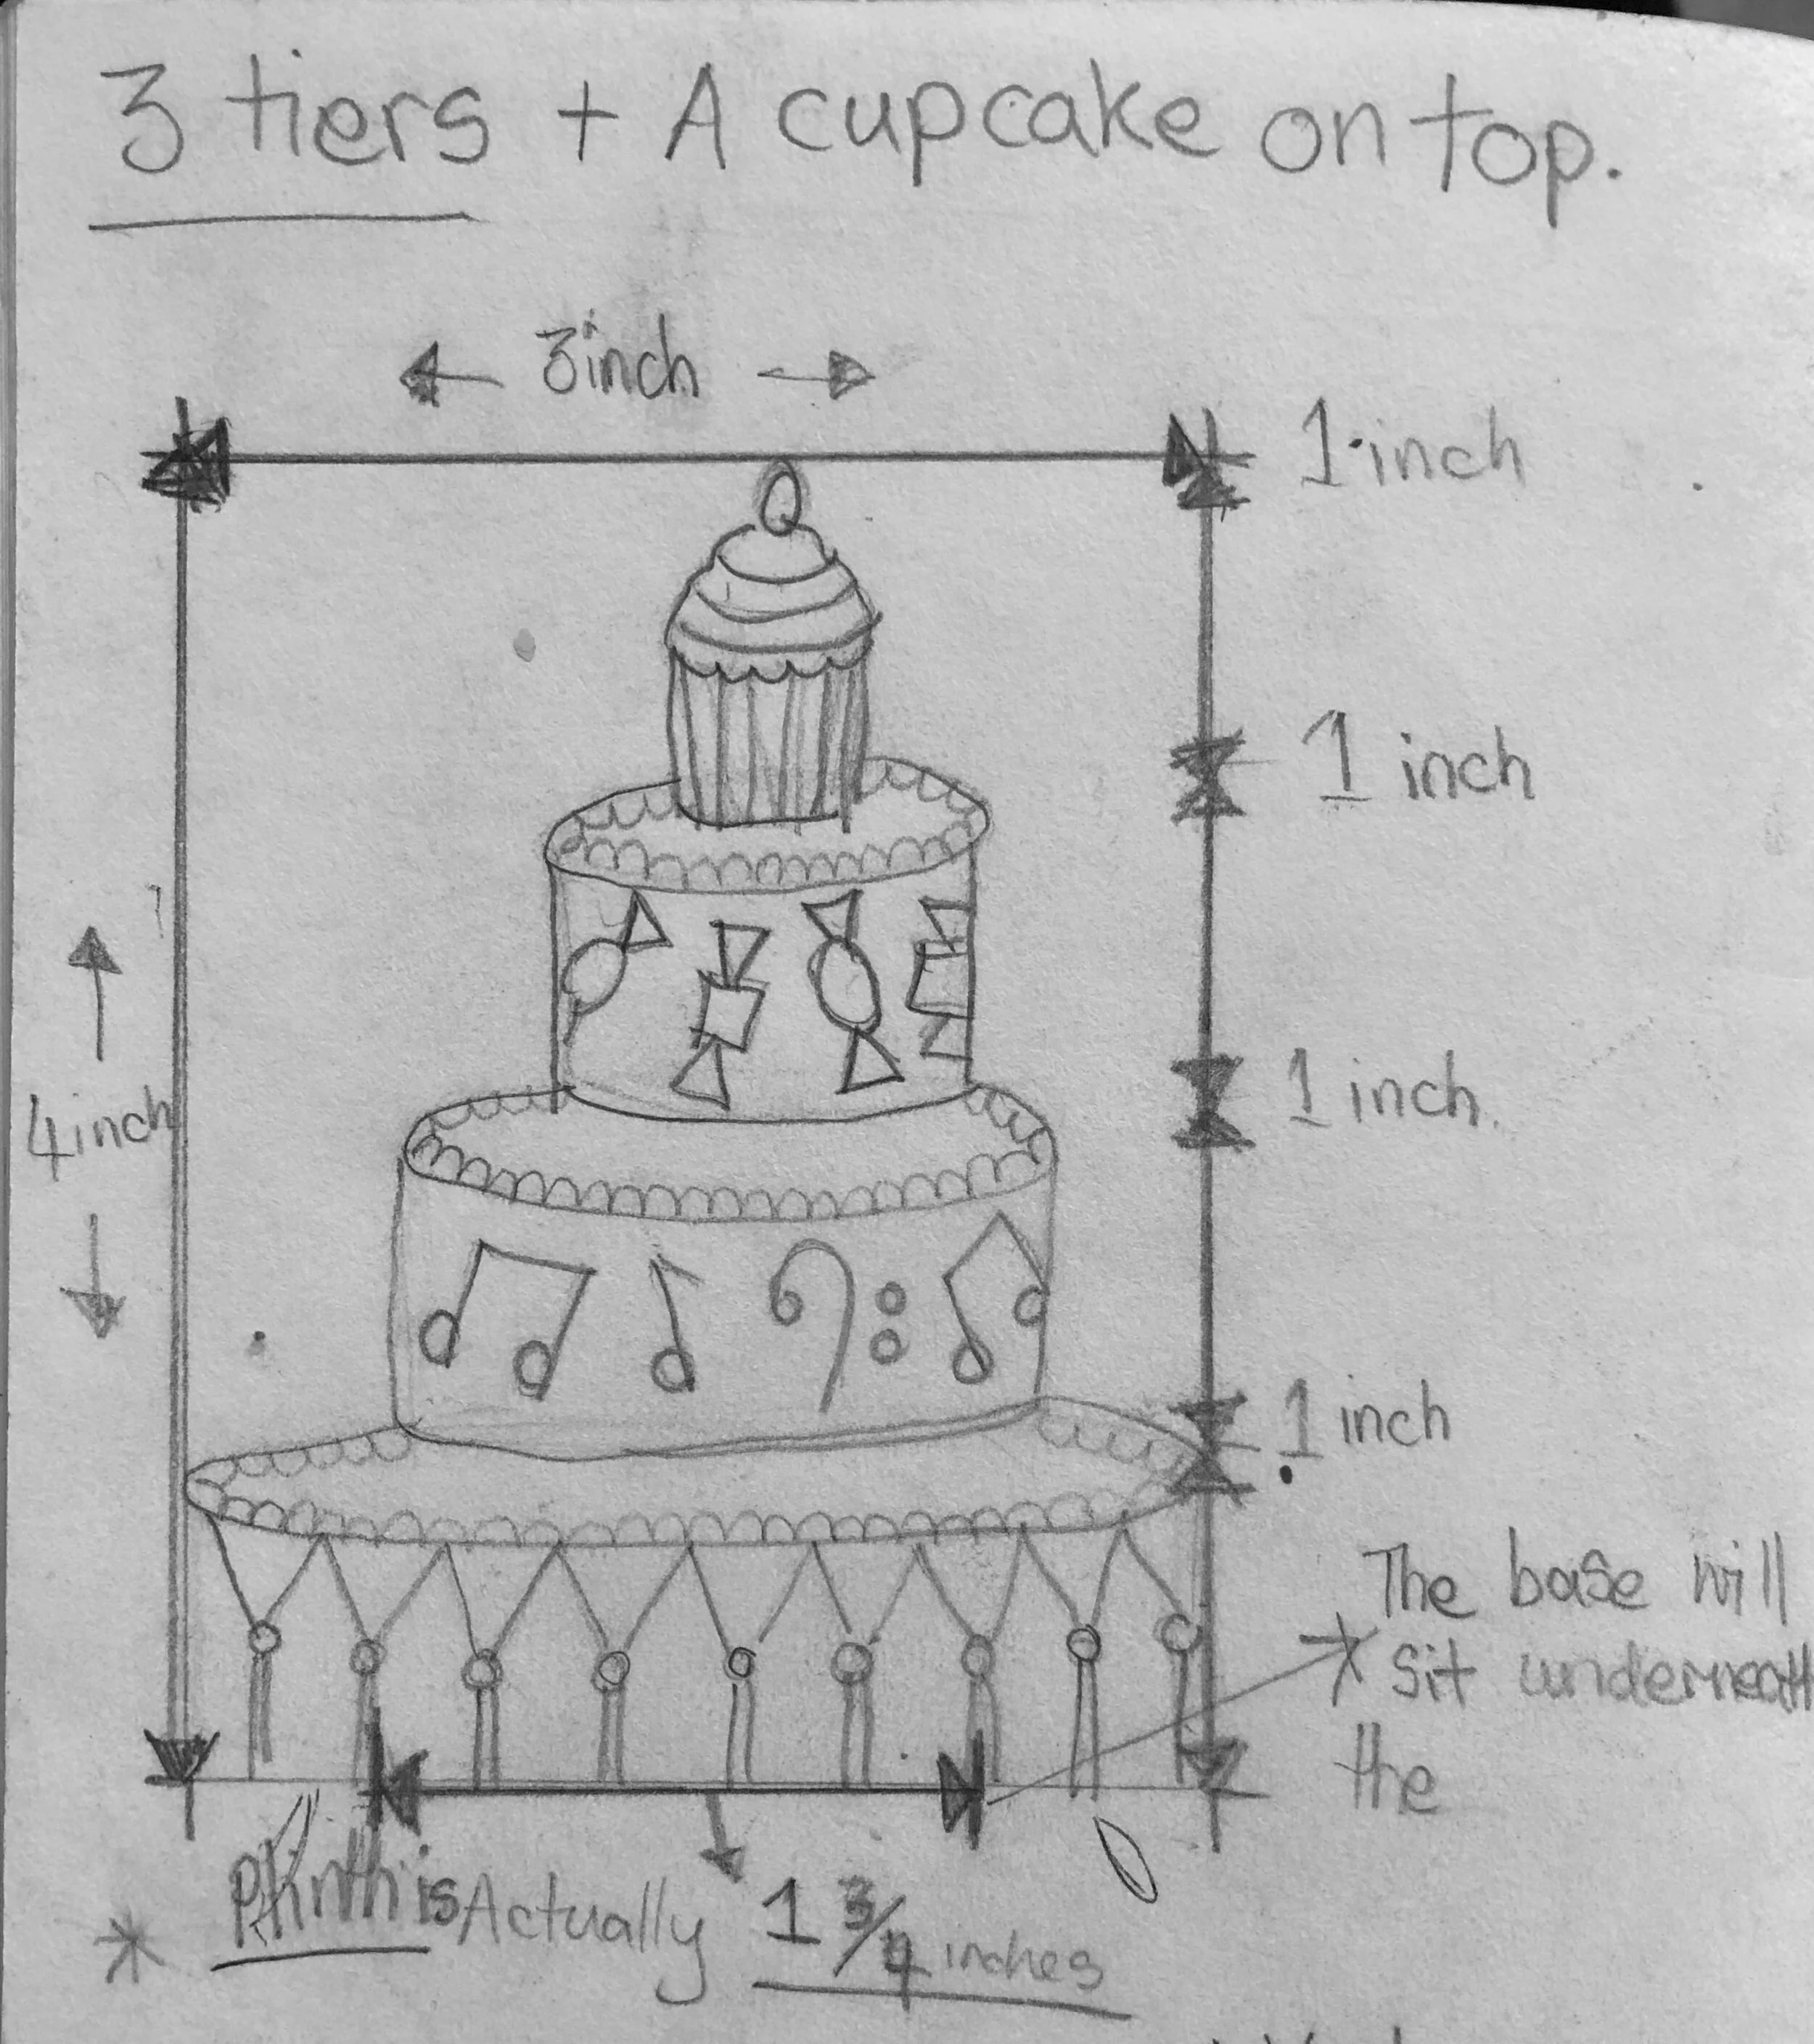 3 tiers + A cupcake on top.
3inch
1 inch
1 inch
4inch
1 inch.
1 inch
The base will
sit underneath
the
Plinth is Actually 1 3/4 inches